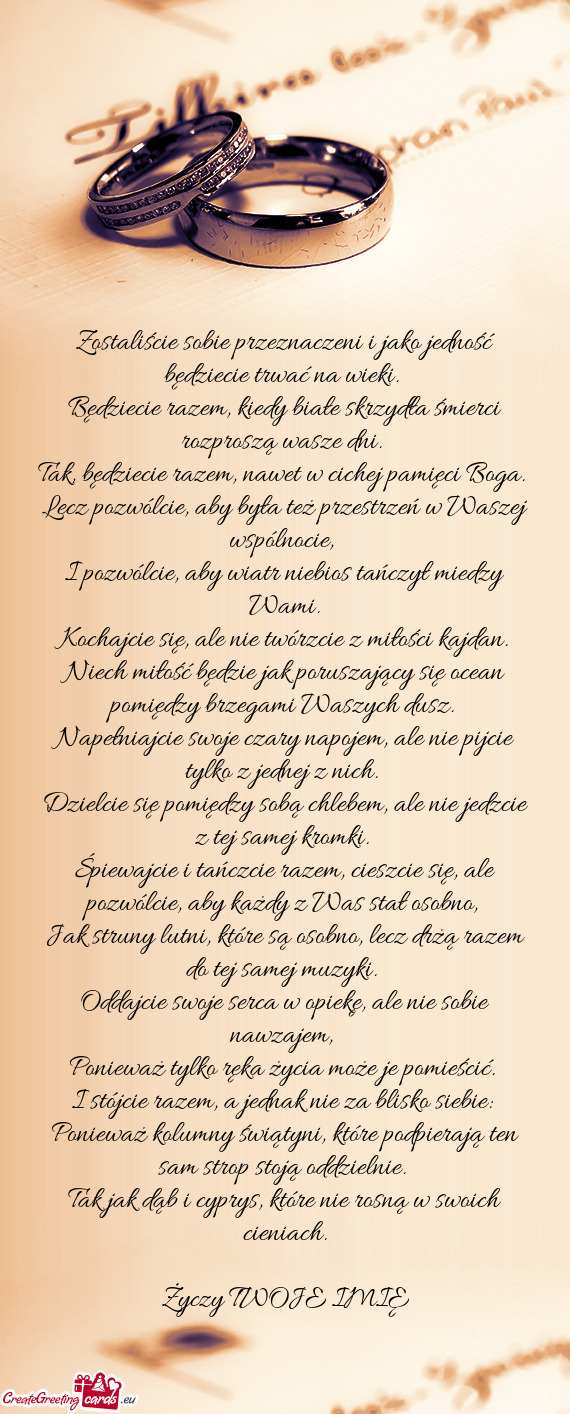 Zostaliście sobie przeznaczeni i jako jedność
będziecie trwać na wieki.
Będziecie razem, kiedy białe skrzydła śmierci
rozproszą wasze dni.
Tak, będziecie razem, nawet w cichej pamięci Boga.
Lecz pozwólcie, aby była też przestrzeń w Waszej
wspólnocie,
I pozwólcie, aby wiatr niebios tańczył miedzy
Wami.
Kochajcie się, ale nie twórzcie z miłości kajdan.
Niech miłość będzie jak poruszający się ocean
pomiędzy brzegami Waszych dusz.
Napełniajcie swoje czary napojem, ale nie pijcie
tylko z jednej z nich.
Dzielcie się pomiędzy sobą chlebem, ale nie jedzcie
z tej samej kromki.
Śpiewajcie i tańczcie razem, cieszcie się, ale
pozwólcie, aby każdy z Was stał osobno,
Jak struny lutni, które są osobno, lecz drżą razem
do tej samej muzyki.
Oddajcie swoje serca w opiekę, ale nie sobie
nawzajem,
Ponieważ tylko ręka życia może je pomieścić.
I stójcie razem, a jednak nie za blisko siebie:
Ponieważ kolumny świątyni, które podpierają ten
sam strop stoją oddzielnie.
Tak jak dąb i cyprys, które nie rosną w swoich
cieniach.
Życzy TWOJE IMIĘ
CreateGreeting cards .eu